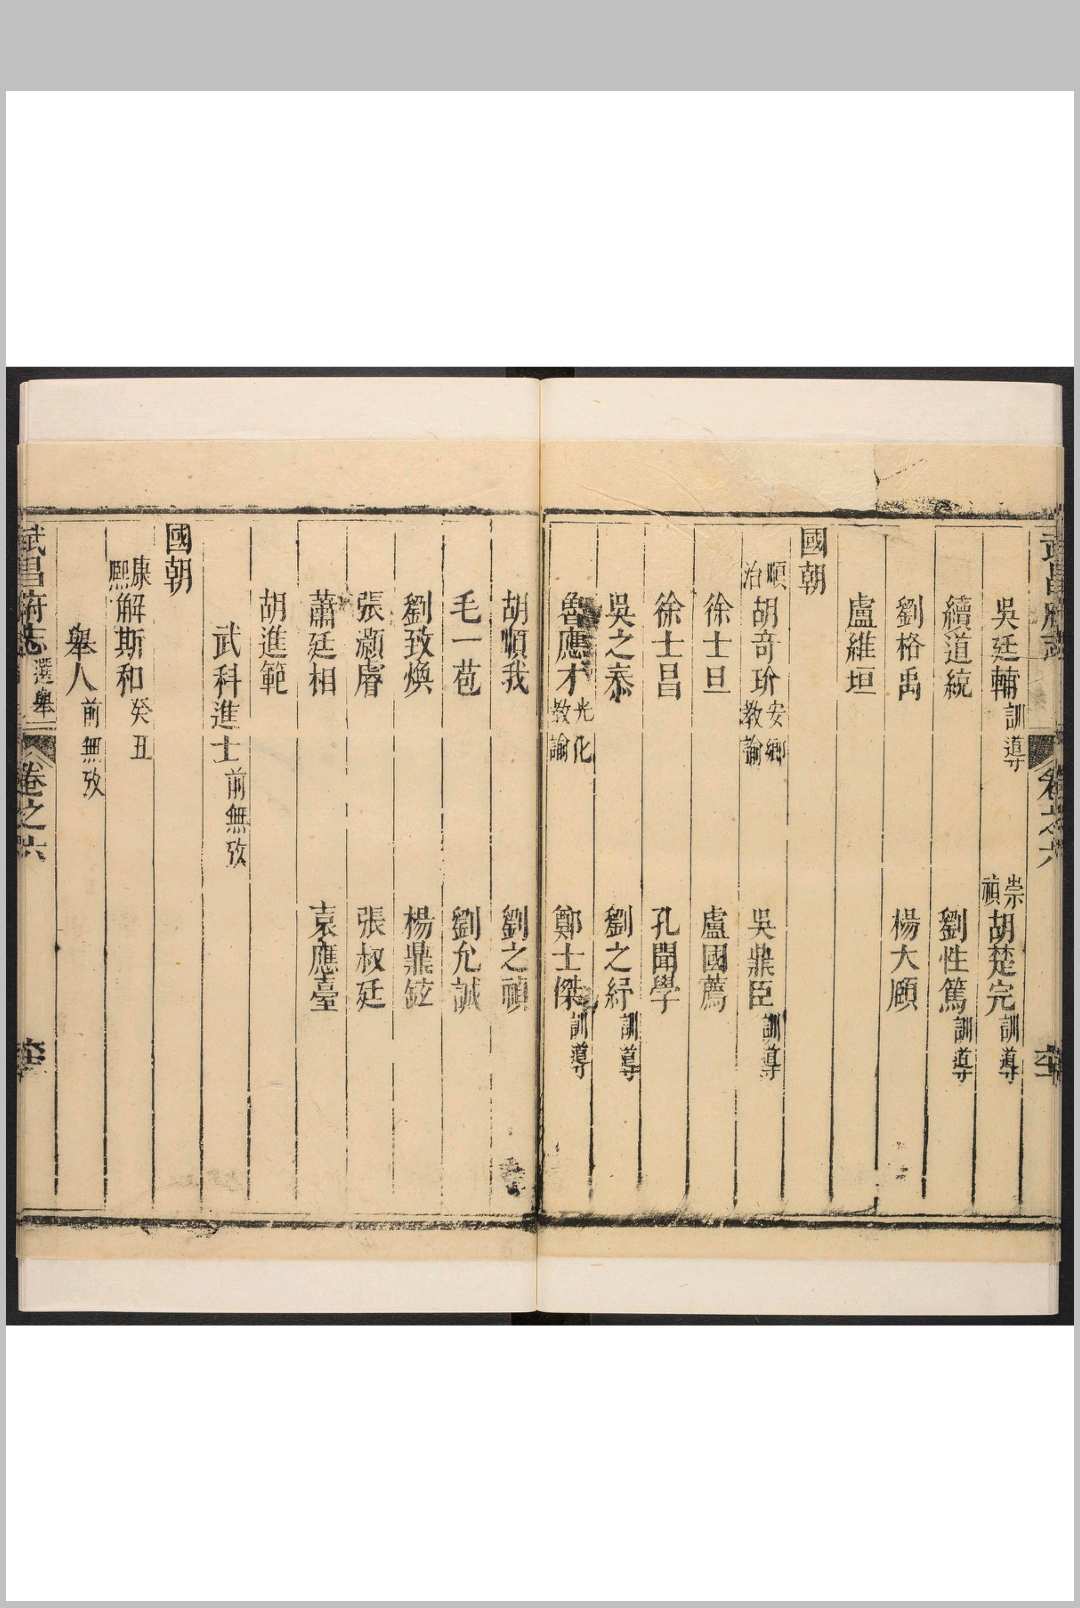 武昌府志 卷之六
吳廷輔訓導 崇禎胡楚完訓導
續道統 劉性篤訓導
劉格禹 楊大頎
盧維垣
國朝
順治胡奇玠安鄉教諭 吳鼎臣訓導
徐士旦 盧國薦
徐士昌 孔聞學
吳之泰 劉之紓訓導
魯應才光化教諭 鄭士傑訓導
胡順我 劉之禎
毛一苞 劉允誠
劉致煥 楊鼎鉉
張灝睿 張叔廷
蕭廷相 袁應臺
胡進範
武科進士前無攷
國朝
康熙解斯和癸丑
舉人前無攷
武昌府志 選舉二 卷之六